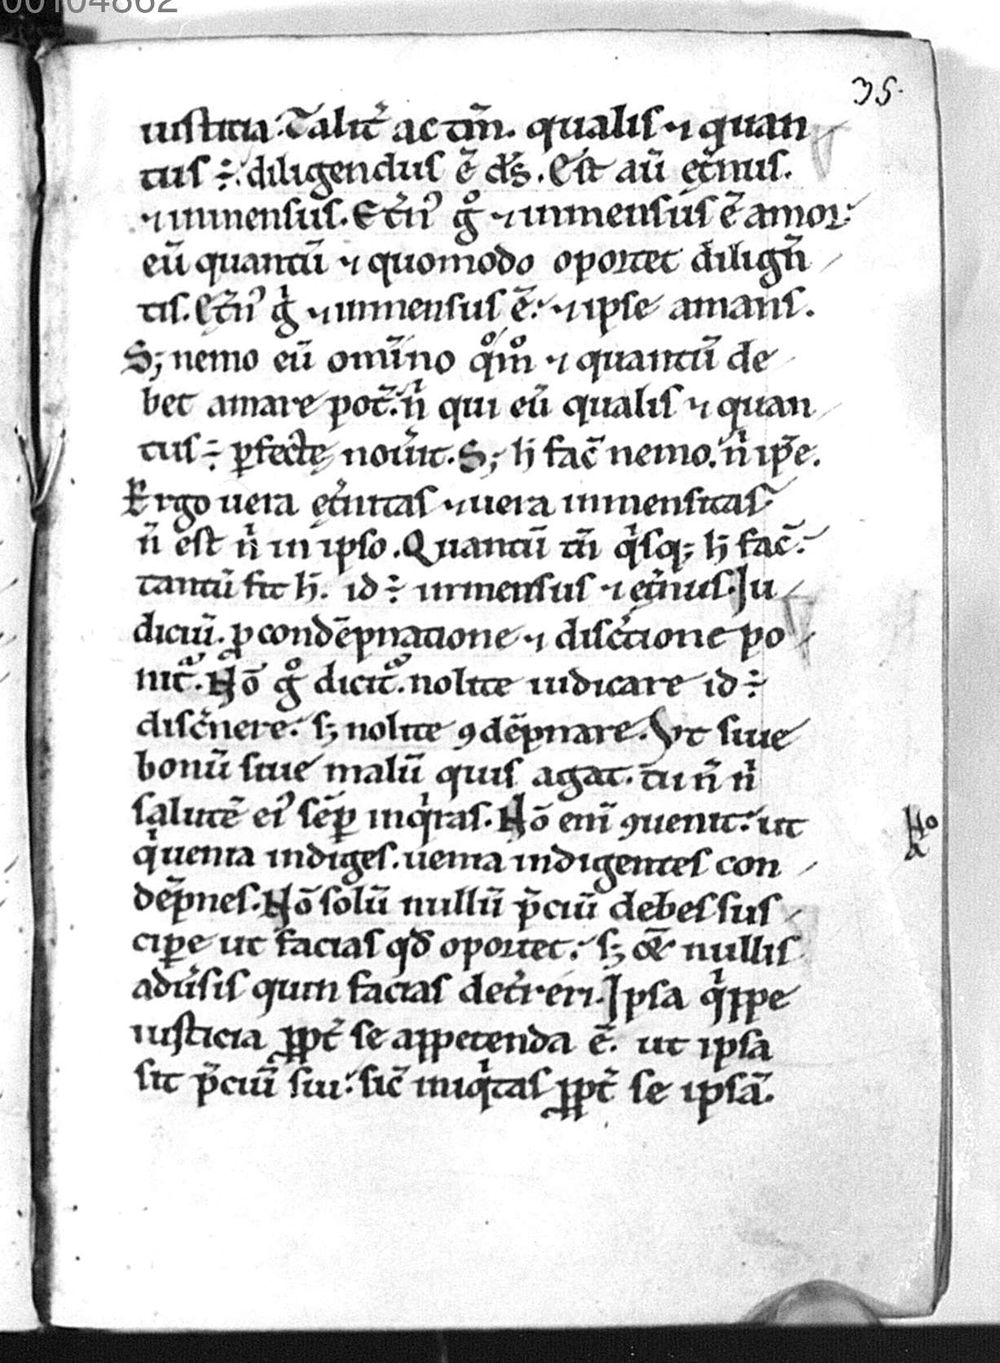 00104862
35.
iusticia. Talit᷑ ac tm̄. qualis ⁊ quan
tus ÷ diligendus ē ds̄. Est aū et̄nus.
⁊ inmensus. Et̄n᷒ gͦ ⁊ inmensus ē amor
eū quantū ⁊ quomodo oportet dilign̄
tis. Et̄n᷒ gͥ ⁊ inmensus ē. ⁊ ipse amans.
S; nemo eū omīno qͦmͦ ⁊ quantū de
bet amare pot̄. nͥ qui eū qualis ⁊ quan
tus ÷ ꝑfectę nou̾it. S; h̄ fac̄ nemo. nͥ ip̄e.
Ergo uera et̄nitas ⁊ uera inmensitas
n̄ est nͥ in ipso. Quantū tn̄ qͥsq; h̄ fac̄.
tantū fit h̄. id ÷ inmensus ⁊ et̄nus. Iu
diciū. ꝓ condēpnatione ⁊ disc̄tione po
nit᷑. Nō gͦ dicit᷑. nolite iudicare id ÷
disc̄nere. s; nolite ꝯdēpnare. Vt siue
bonū siue malū quis agat. tu n̄ nͥ
salutē ei᷒ sēꝑ inqͥras. Nō eni ꝯuenit. ut
qͥ uenia indiges. uenia indigentes con
dēpnes. Nō solū nullū p̄ciū debes sus
ciꝑe ut facias qd̄ oportet. s; & nullis
adu̾sis quin facias det̾reri. Ipsa qͥppe
iusticia ꝓpt̄ se appetenda ē. ut ipsa
sit p̄ciū sui. sic̄ iniqͥtas ꝓpt̄ se ipsā.